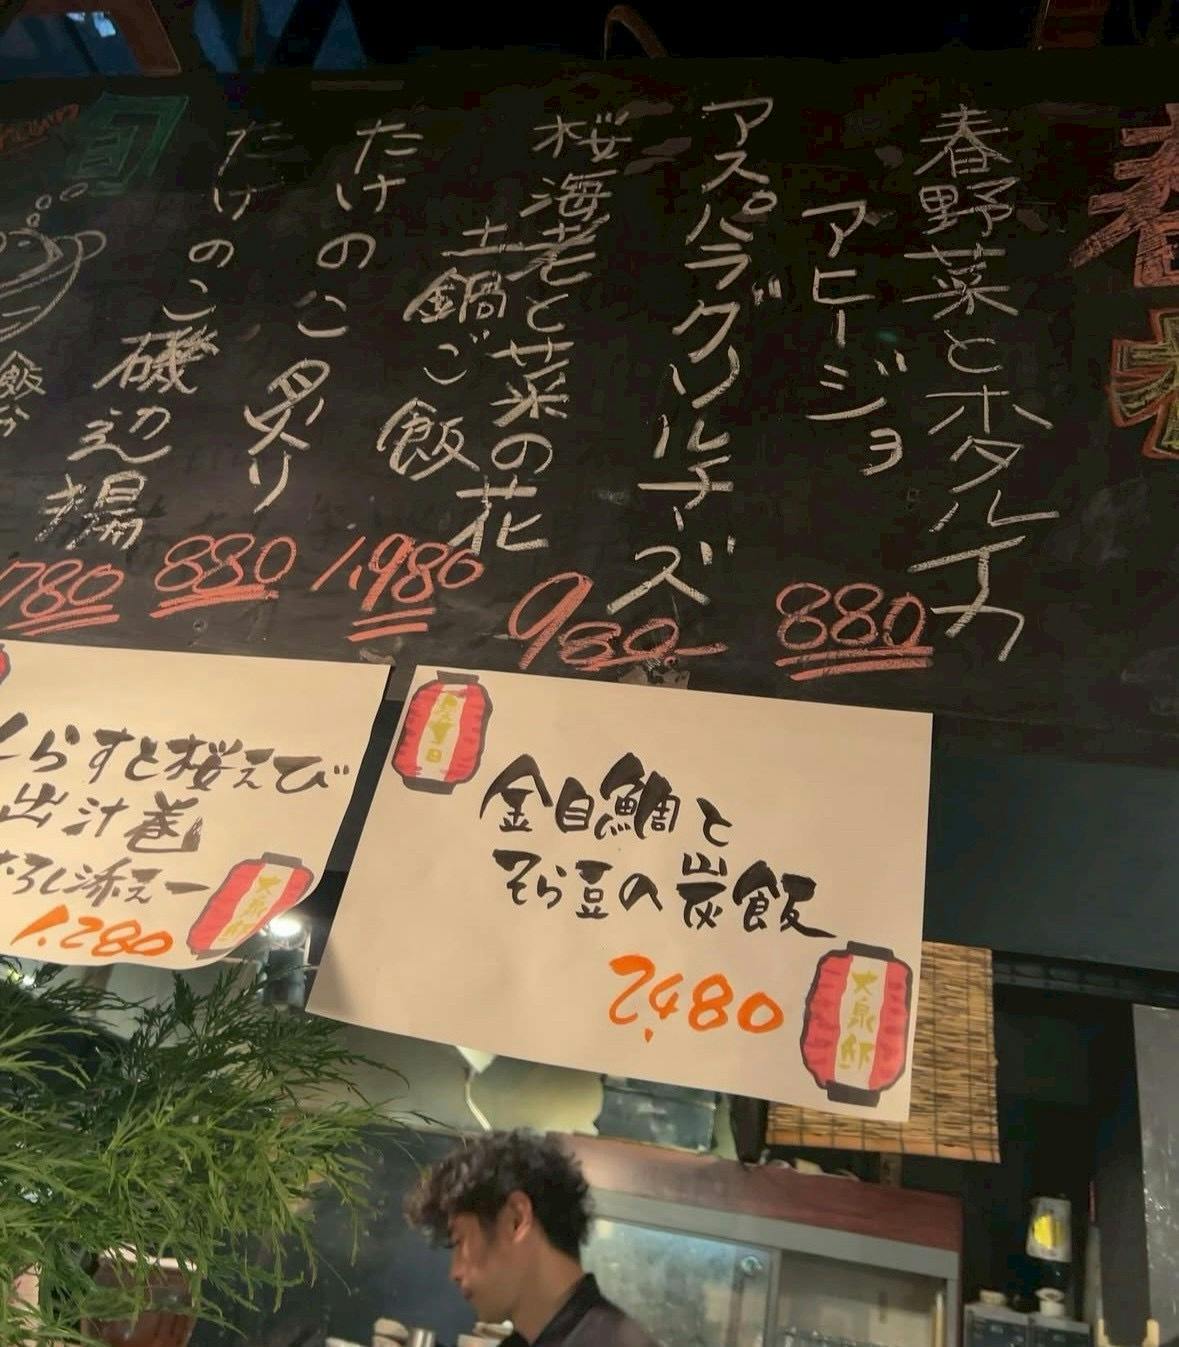 春
春野菜とホタルイカ
アヒージョ
880
アスパラグリルチーズ
980-
桜海老と菜の花
土鍋ご飯
1,980
たけのこ炙り
880
たけのこ磯辺揚
780
旬
金目鯛と
そら豆の炭飯
2,480
大泉邸
しらすと桜えび
出汁巻
おろし添え
1,280
大泉邸